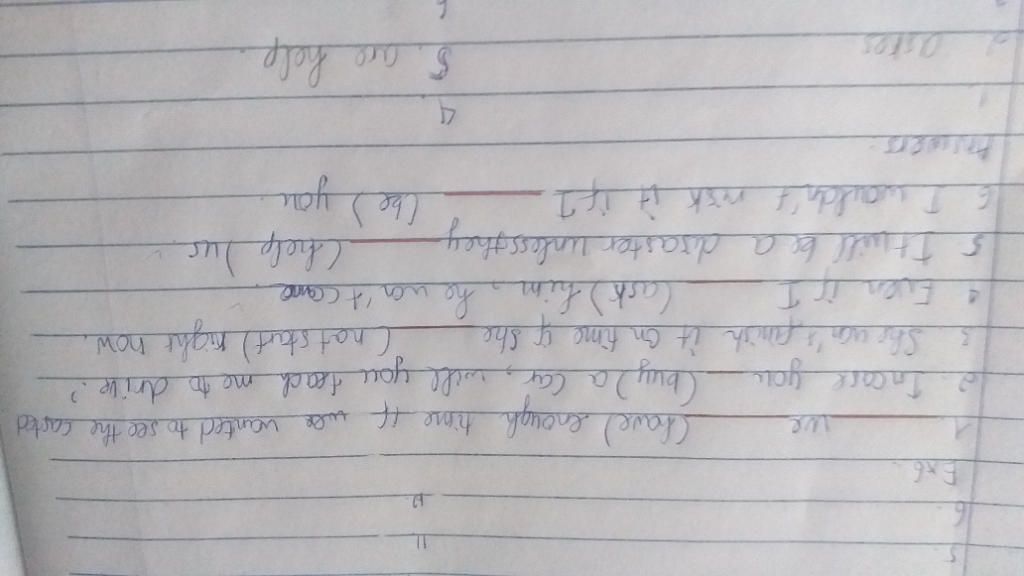 5. 11
6. 12
Ex6.
1. we (have) enough time if we wanted to see the
2. Incase you (buy) a car, will you teach me to drive?
3 She won't finish it on time if she (not start) right now.
4 Even if I (ask) him, he won't came
5 It will be a disaster unless they (help) us.
6 I wouldn't risk it if I (be) you.
Answers.
1 4
2 5. are help.
6